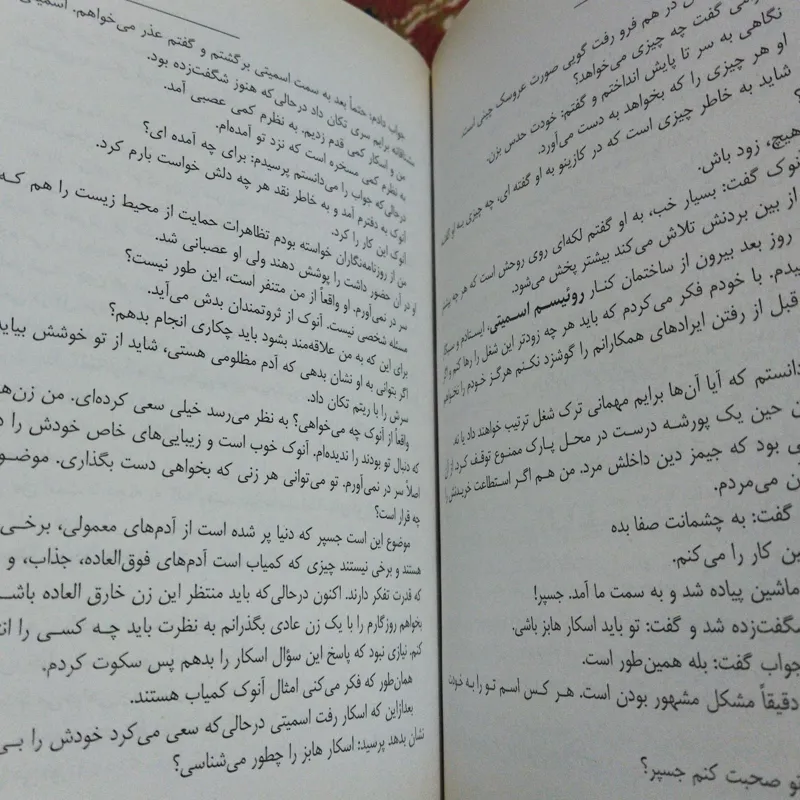 در هم فرو رفت گویی صورت عروسک چینی است.
گفت چه چیزی می‌خواهد؟
نگاهی به سر تا پایش انداختم و گفتم: خودت حدس بزن.
او هر چیزی را که بخواهد به دست می‌آورد.
شاید به خاطر چیزی است که در کازینو به او گفته ای، چه چیزی به او
هیچ، زود باش.
آنوک گفت: بسیار خب، به او گفتم لکه‌ای روی روحش است که هر چه بیشتر
از بین بردنش تلاش می‌کند بیشتر پخش می‌شود.
روز بعد بیرون از ساختمان کنار روئیسم اسمیتی، ایستادم و
با خودم فکر می‌کردم که باید هر چه زودتر این شغل را رها کنم و
قبل از رفتن ایرادهای همکارانم را گوشزد نکنم هرگز خودم را
که آیا آن‌ها برایم مهمانی ترک شغل ترتیب خواهند داد یا نه.
حین یک پورشه درست در محل پارک ممنوع توقف کرد. از آن
بود که جیمز دین داخلش مرد. من هم اگر استطاعت خریدنش را
می‌مردم.
گفت: به چشمانت صفا بده
کار را می‌کنم.
ماشین پیاده شد و به سمت ما آمد. جسپر!
شگفت‌زده شد و گفت: تو باید اسکار هابز باشی.
جواب گفت: بله همین‌طور است.
دقیقاً مشکل مشهور بودن است. هر کس اسم تو را به خودت
تو صحبت کنم جسپر؟
جواب دادم: حتماً بعد به سمت اسمیتی برگشتم و گفتم عذر می‌خواهم.
مشتاقانه برایم سری تکان داد درحالی‌که هنوز شگفت‌زده بود.
من و اسکار کمی قدم زدیم. به نظرم کمی عصبی آمد.
به نظرم کمی مسخره است که نزد تو آمده‌ام.
درحالی که جواب را می‌دانستم پرسیدم: برای چه آمده ای؟
آنوک به دفترم آمد و به خاطر نقد هر چه دلش خواست بارم کرد.
آنوک این کار را کرد.
من از روزنامه‌نگاران خواسته بودم تظاهرات حمایت از محیط زیست را هم که
او در آن حضور داشت را پوشش دهند ولی او عصبانی شد.
سر در نمی‌آورم. او واقعاً از من متنفر است، این طور نیست؟
مسئله شخصی نیست. آنوک از ثروتمندان بدش می‌آید.
برای این که به من علاقه‌مند بشود باید چکاری انجام بدهم؟
اگر بتوانی به او نشان بدهی که آدم مظلومی هستی، شاید از تو خوشش بیاید
سرش را با ریتم تکان داد.
واقعاً از آنوک چه می‌خواهی؟ به نظر می‌رسد خیلی سعی کرده‌ای. من زن‌ها
که دنبال تو بودند را ندیده‌ام. آنوک خوب است و زیبایی‌های خاص خودش را
اصلاً سر در نمی‌آورم. تو می‌توانی هر زنی که بخواهی دست بگذاری. موضوع
چه قرار است؟
موضوع این است جسپر که دنیا پر شده است از آدم‌های معمولی، برخی
هستند و برخی نیستند چیزی که کمیاب است آدم‌های فوق‌العاده، جذاب، و
که قدرت تفکر دارند. اکنون درحالی‌که باید منتظر این زن خارق العاده
بخواهم روزگارم را با یک زن عادی بگذرانم به نظرت باید چه کسی را
کنم. نیازی نبود که پاسخ این سؤال اسکار را بدهم پس سکوت کردم.
همان‌طور که فکر می‌کنی امثال آنوک کمیاب هستند.
بعدازاین که اسکار رفت اسمیتی درحالی‌که سعی می‌کرد خودش را
نشان بدهد پرسید: اسکار هابز را چطور می‌شناسی؟